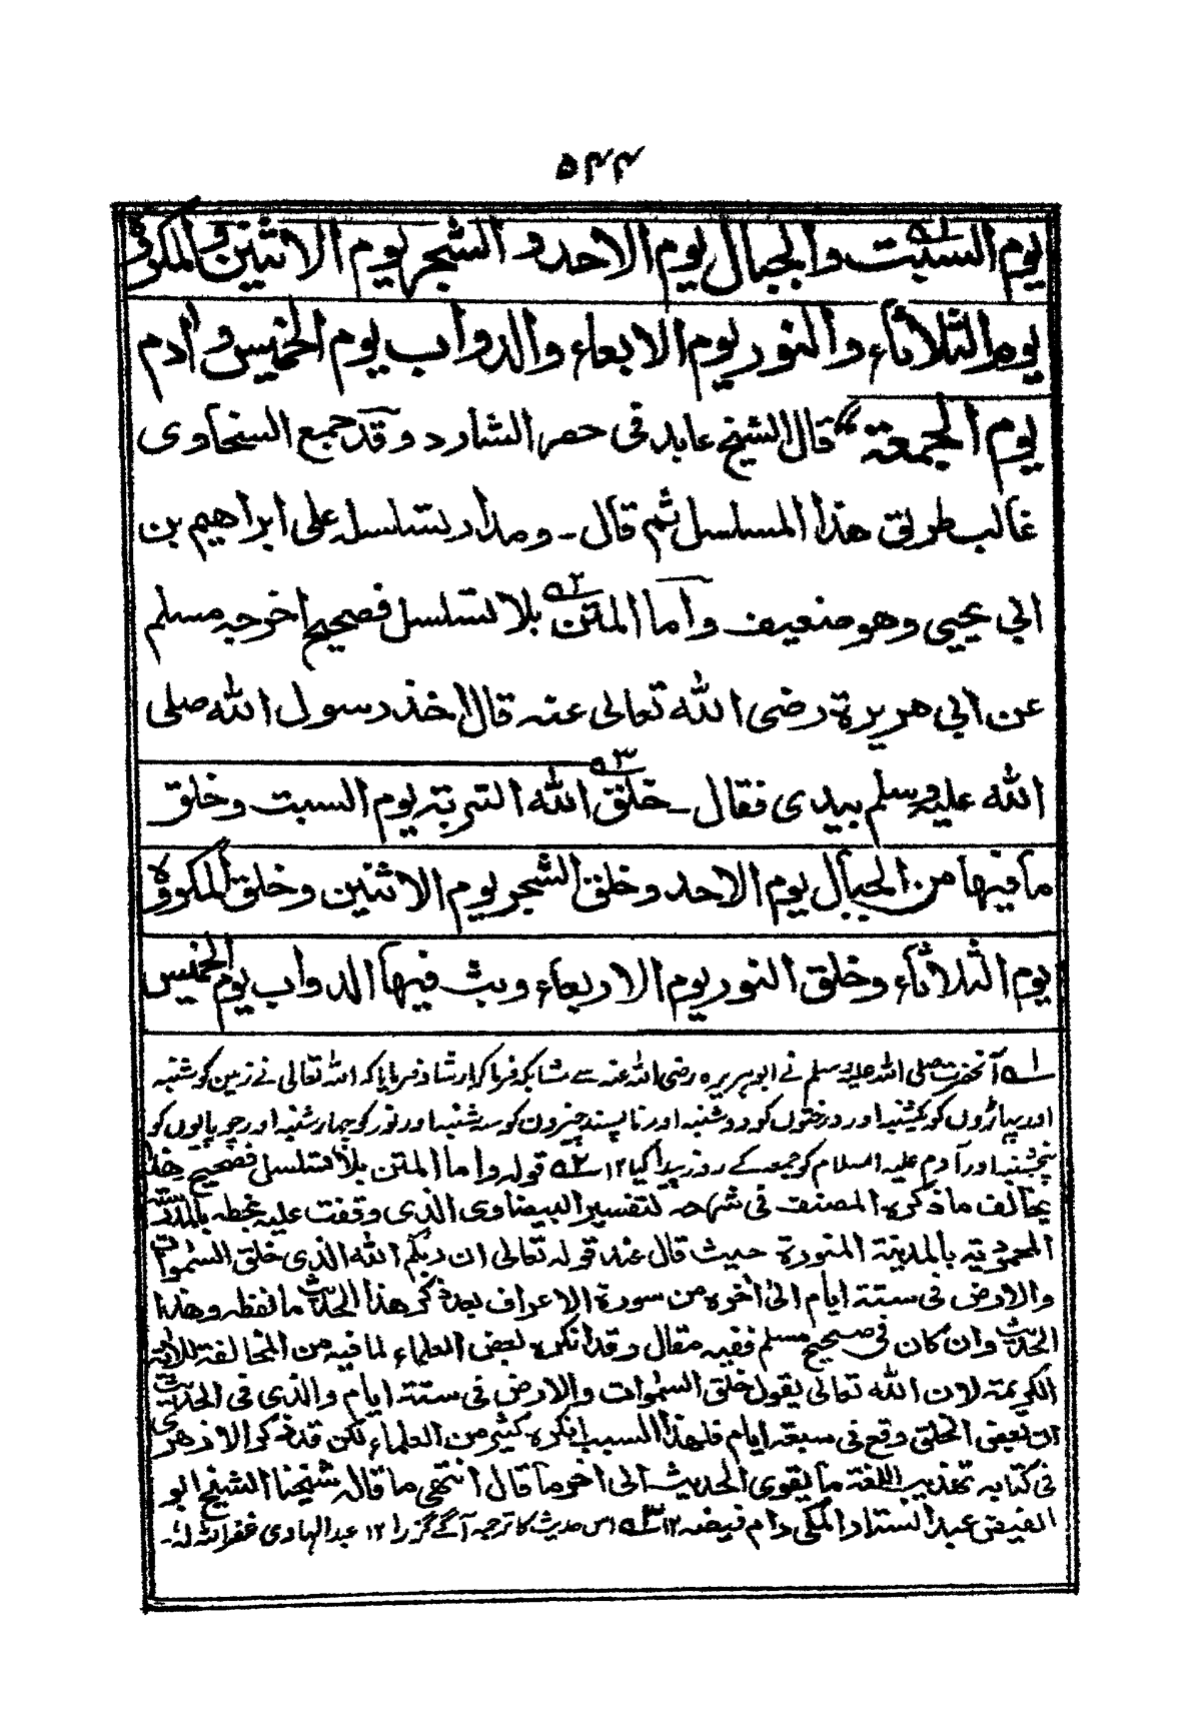 ۵۴۴
يوم السبت والجبال يوم الاحد و الشجر يوم الاثنين والمكروه
يوم الثلاثاء والنور يوم الابعاء والدواب يوم الخميس وادم
يوم الجمعة" قال الشيخ عابد فى حصر الشارد وقد جمع السخاوى
غالب طريق هذا المسلسل ثم قال - ومدار تسلسله على ابراهيم بن
ابي يحيى وهو ضعيف واما المتن بلا تسلسل فصحيح اخرجه مسلم
عن ابي هريرة رضى الله تعالى عنه قال اخذ رسول الله صلى
الله عليه وسلم بيدى فقال - خلق الله التربة يوم السبت وخلق
ما فيها من الجبال يوم الاحد وخلق الشجر يوم الاثنين وخلق المكروه
يوم الثلاثاء وخلق النور يوم الاربعاء وبث فيها الدواب يوم الخميس
۱ھ آنحضرت صلى الله عليه وسلم نے ابوہریرہ رضى الله عنہ سے مشابکہ فرما کر ارشاد فرمایا کہ الله تعالى نے زمین کو شنبہ
اور پہاڑوں کو یکشنبہ اور درختوں کو دوشنبہ اور ناپسند چیزوں کو سہ شنبہ اور نور کو چہار شنبہ اور چوپایوں کو
پنجشنبہ اور آدم علیہ السلام کو جمعہ کے روز پیدا کیا ۱۲ ۲ھ قوله واما المتن بلا تسلسل فصحيح هذا
يخالف ما ذكره المصنف فى شرحه لتفسير البيضاوى الذى وقفت عليه بخطه بالمدرسة
المحمودية بالمدينة المنورة حيث قال عند قوله تعالى ان ربكم الله الذى خلق السموات
والارض فى ستة ايام الى آخره من سورة الاعراف بعد ذكر هذا الحديث ما لفظه وهذا
الحديث وان كان فى صحيح مسلم ففيه مقال وقد انكره بعض العلماء لما فيه من المخالفة للآية
الكريمة لان الله تعالى يقول خلق السموات والارض فى ستة ايام والذى فى الحديث
ان بعض الخلق وقع فى سبعة ايام فلهذا السبب انكره كثير من العلماء لكن قد ذكر الازهرى
فى كتابه تهذيب اللغة ما يقوى الحديث الى اخر ما قال انتهى ما قاله شيخنا الشيخ ابو
الفيض عبد الستار المكى دام فيضه ۱۲ ۳ھ اس حدیث کا ترجمہ آگے گزرا ۱۲ عبد الہادی غفر الله لہ -